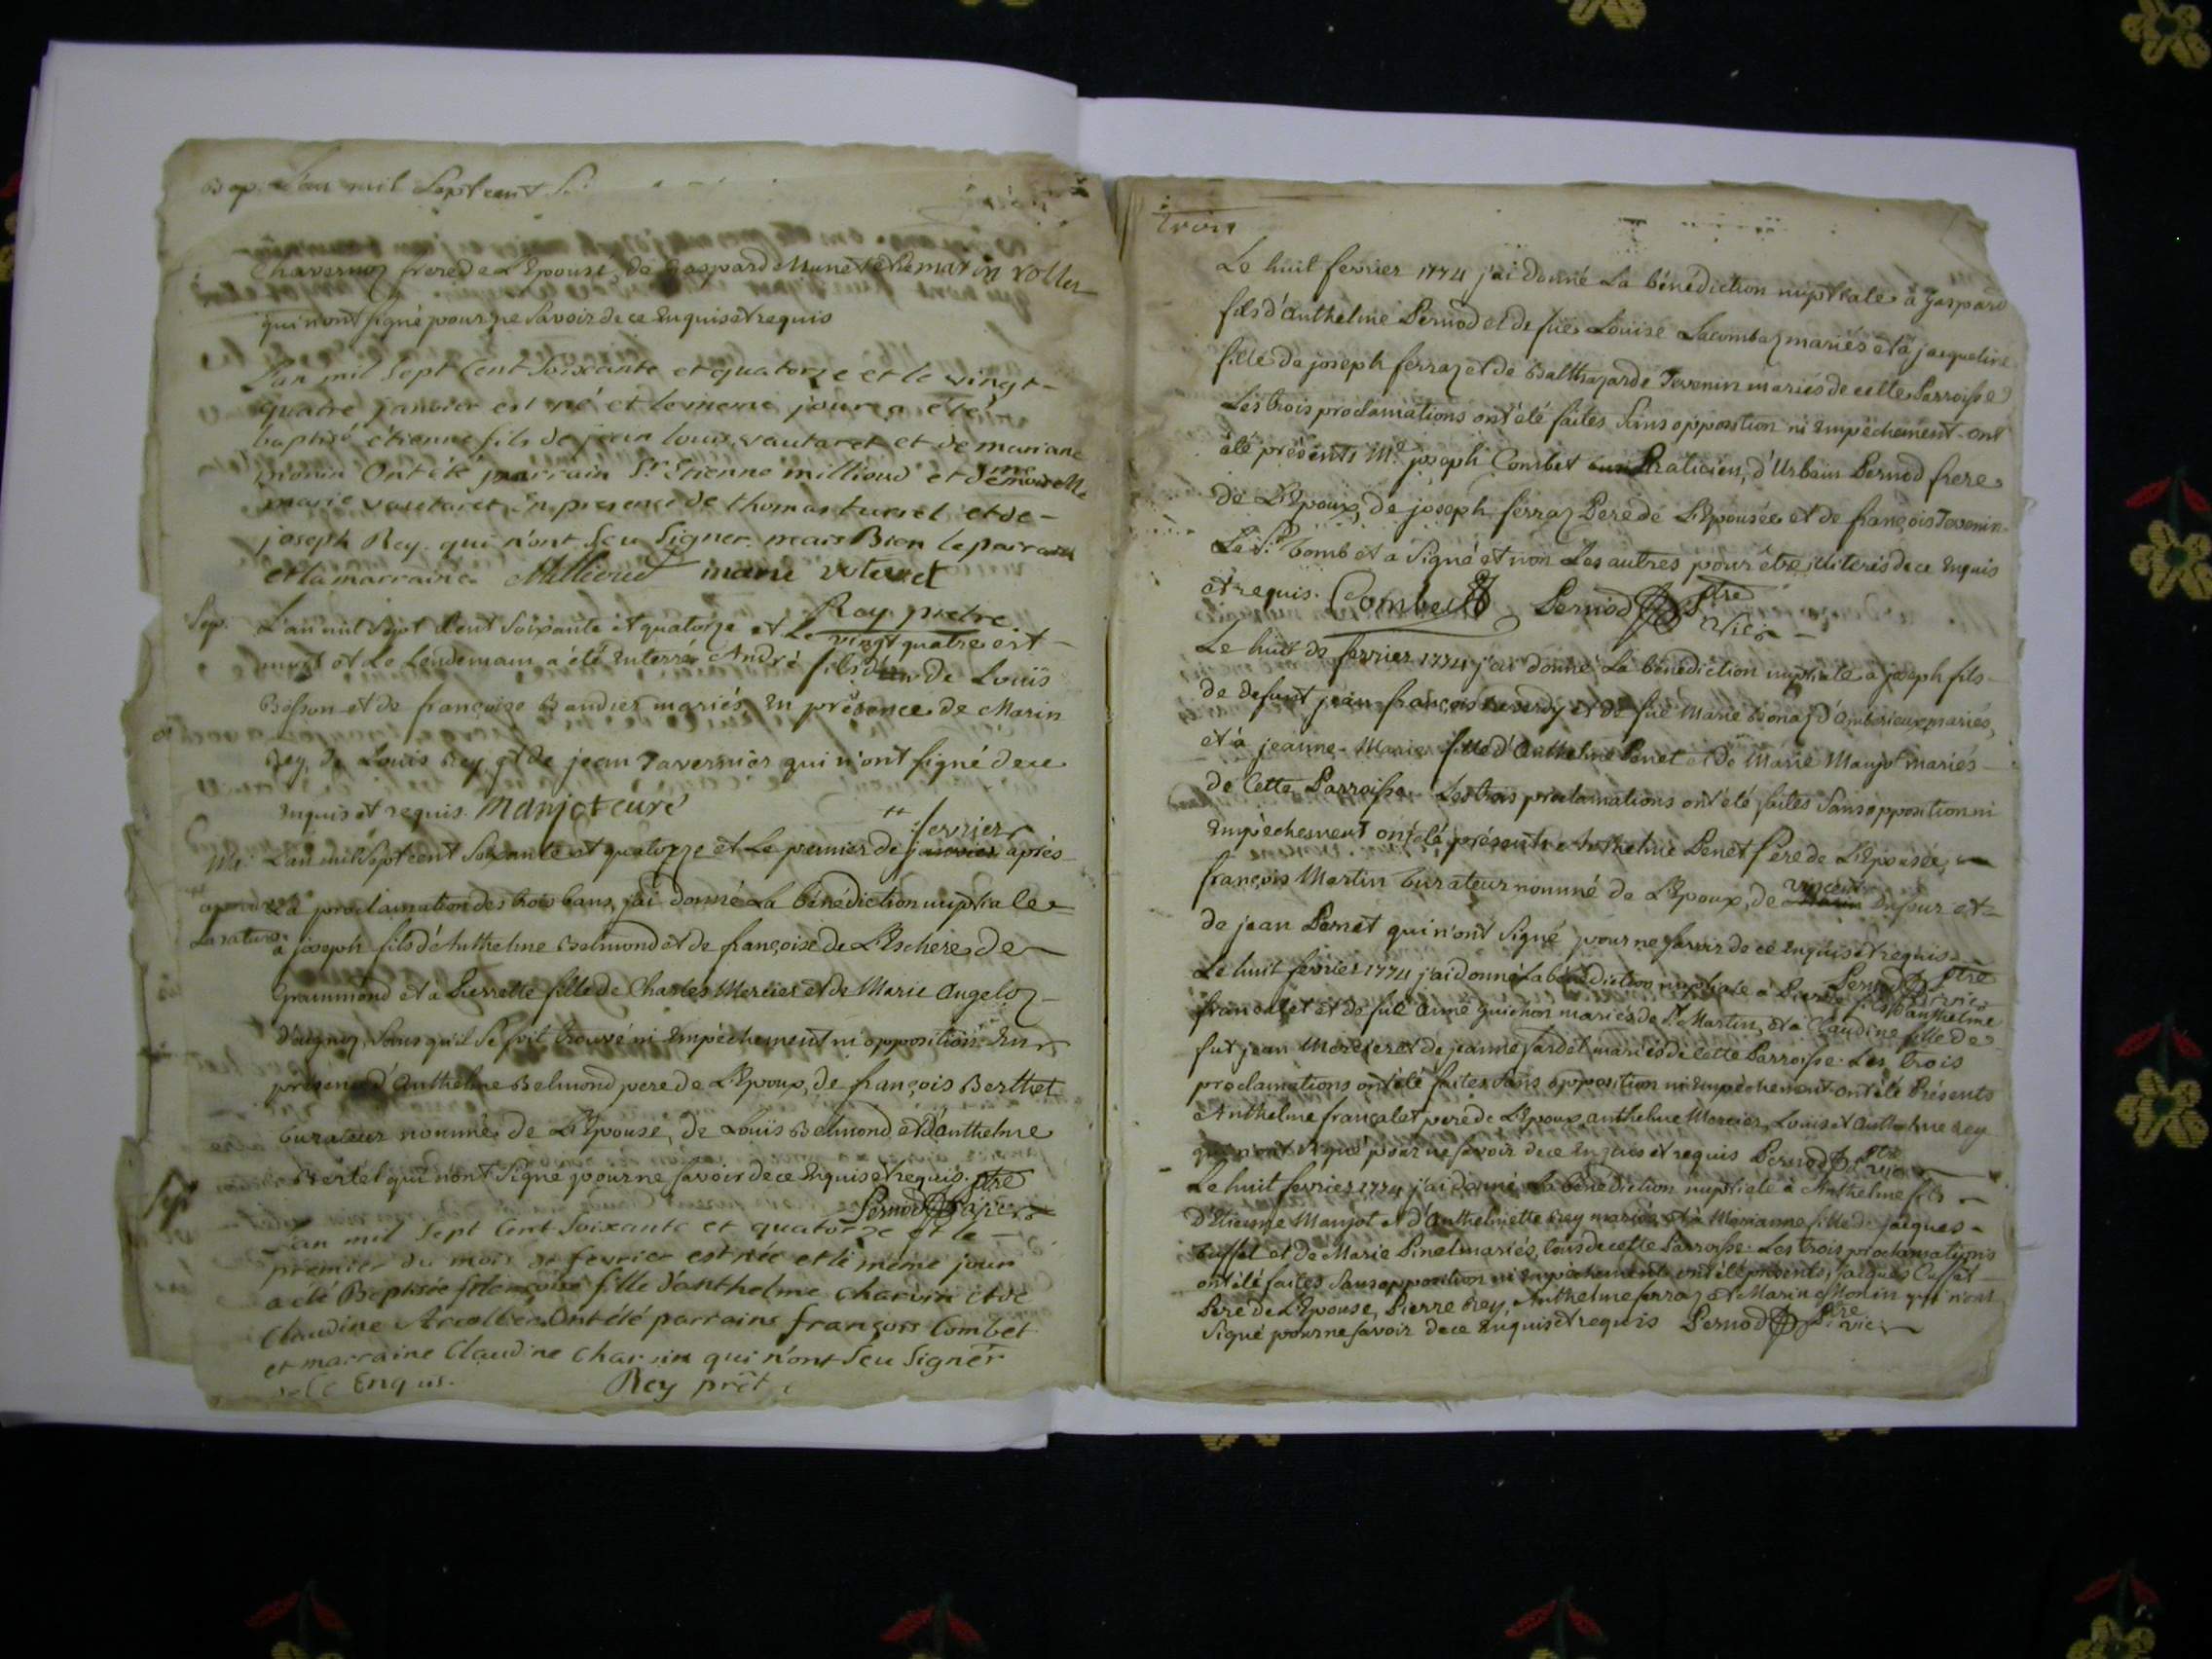 Bap. L'an mil Sept cent
Chavernoz frere de L'Epouse, de Gaspard Munet et de marin rollet
qui n'ont signé pour ne Savoir de ce Enquis et requis
L'an mil Sept Cent Soixante et quatorze et le vingt-
quatre janvier est né et le meme jour a été
baptisé étienne fils de jean louis vautaret et de mariane
monin Ont été parrain Sr. Etienne millioud et demoiselle
marie vautaret En presence de thomas turrel et de-
joseph Rey. qui n'ont Seu Signer. mais Bien le parrain
et la marraine. Millioud marie voteret
Rey prêtre
Sep. L'an mil Sept Cent Soixante et quatorze et Le vingt quatre est
mort et Le Lendemain a été Enterré André fils de Louis
Besson et de françoise Baudier mariés, En présence de Marin
Rey, de Louis Rey, et de jean Tavernier qui n'ont signé de ce
Enquis et requis. Manjot curé
fevrier
Ma. L'an mil Sept cent Soixante et quatorze et Le premier de janvier après
approuvé La proclamation des trois bans, j'ai donné La bénédiction nuptiale
La rature. à joseph fils d'Anthelme Belmond et de françoise de L'Eschere de
Grammond et à Pierrette fille de Charles Mercier et de Marie Angeloz
d'aignoz, Sans qu'il Se soit trouvé ni Empêchement ni opposition. En
présence d'Anthelme Belmond pere de L'Epoux, de françois Berthet
Curateur nommé de L'Epouse, de Louis Belmond et d'Anthelme
Bertet qui n'ont Signé pour ne savoir de ce Enquis et requis.
Pernod Ptre vic.
Sep L'an mil Sept Cent Soixante et quatorze et le
premier du mois de fevrier est née et le même jour
a été Baptisée françoise fille d'anthelme Charvin et de
Claudine Ont été parrains françois Combet
et marraine Claudine Charvin qui n'ont Seu Signér
de Ce Enquis. Rey prêt
Trois
Le huit fevrier 1774 j'ai donné La bénédiction nuptiale à Gaspard
fils d'Anthelme Pernod et de fuë Louise Lacombaz mariés et à jaqueline
fille de joseph ferraz et de Balthazarde Tevenin mariés de cette Parroisse
Les trois proclamations ont été faites Sans opposition ni Empêchement. Ont
été présents Me. joseph Combet Praticien, d'Urbain Pernod frere
de L'Epoux, de joseph ferraz Pere de L'Epousée et de françois Tevenin
Le Sr. Combet a Signé et non Les autres pour être illiterés de ce Enquis
et requis. Combet Pernod Ptre Vic.
Le huit de fevrier 1774 j'ai donné La bénédiction nuptiale à joseph fils
de defunt jean françois Reverdy et de fuë Marie Bonaz d'Amberieux mariés,
et à jeanne-Marie fille d'Anthelme Penet et de Marie Maujot mariés
de Cette Parroisse. Les trois proclamations ont été faites Sans opposition ni
Empêchement ont été présents Anthelme Penet Pere de L'Epousée,
françois Martin Curateur nommé de L'Epoux, de Vincent Dufour et
de jean Pernet qui n'ont Signé pour ne savoir de ce Enquis et requis
Pernod Ptre vic.
Le huit fevrier 1774 j'ai donné La bénédiction nuptiale à Pierre fils d'anthelme
francalet et de fuë Aimé Guichon mariés de St. Martin, et à Claudine fille de
fut jean Mercier et de jeanne jardet mariés de cette Parroisse. Les trois
proclamations ont été faites Sans opposition ni Empêchement. Ont été Présents
Anthelme francalet pere de L'Epoux, anthelme Mercier, Louis et Anthelme rey
qui n'ont Signé pour ne savoir de ce Enquis et requis Pernod Ptre vic.
Le huit fevrier 1774 j'ai donné La bénédiction nuptiale à Anthelme fils
d'Etienne Maujot et d'Anthelmette Rey mariés, et à Marianne fille de jacques
Cuffet et de Marie Pinet mariés, tous de cette Parroisse. Les trois proclamations
ont été faites Sans opposition ni Empêchement. ont été présents, jacques Cuffet
Pere de L'Epouse, Pierre Rey, Anthelme ferraz et Marin Monin qui n'ont
Signé pour ne savoir de ce Enquis et requis Pernod Ptre vic.